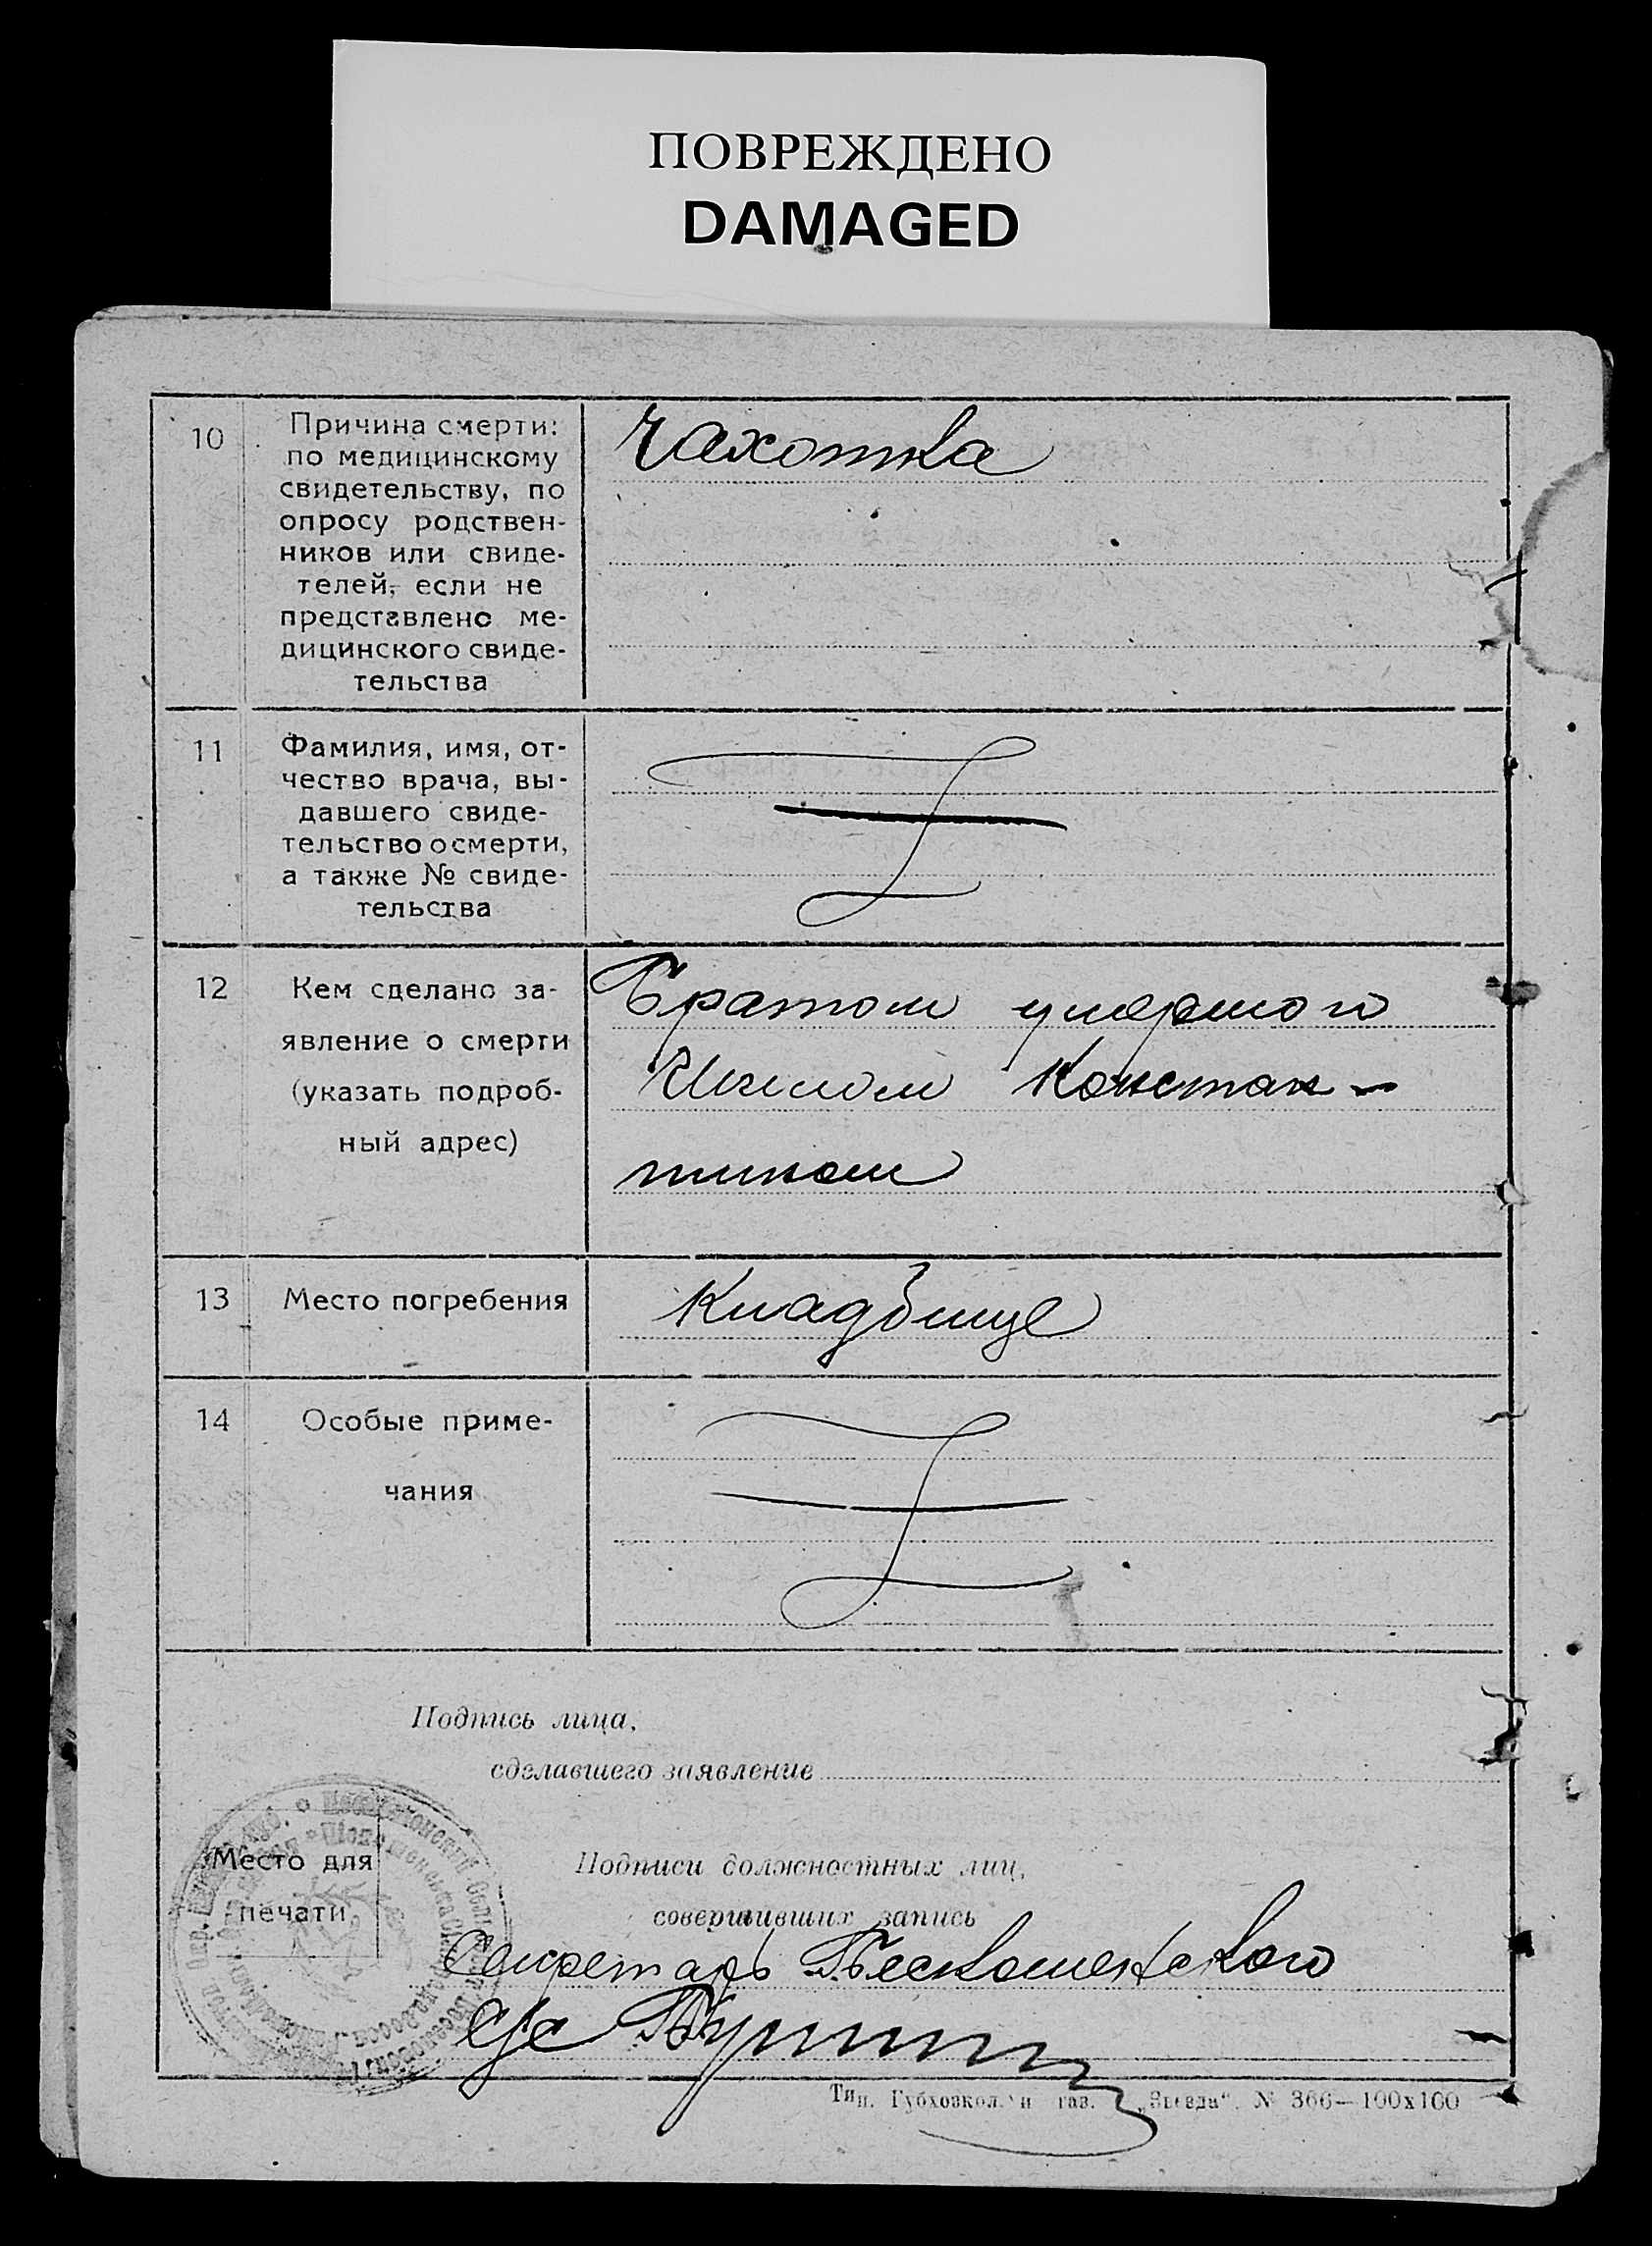 ПОВРЕЖДЕНО
DAMAGED
10
Причина смерти:
по медицинскому
свидетельству, по
опросу родствен-
ников или свиде-
телей, если не
представлено ме-
дицинского свиде-
тельства
Чахотка
11
Фамилия, имя, от-
чество врача, вы-
давшего свиде-
тельство о смерти,
а также № свиде-
тельства
12
Кем сделано за-
явление о смерти
(указать подроб-
ный адрес)
Братом умершого
Констан-
тином
13
Место погребения
Кладбище
14
Особые приме-
чания
Подпись лица,
сделавшего заявление
Место для
печати
Подписи должностных лиц,
совершивших запись
Секретарь
с/с
Тип. Губхозкол. и газ. „Звезда“. № 366—100х100